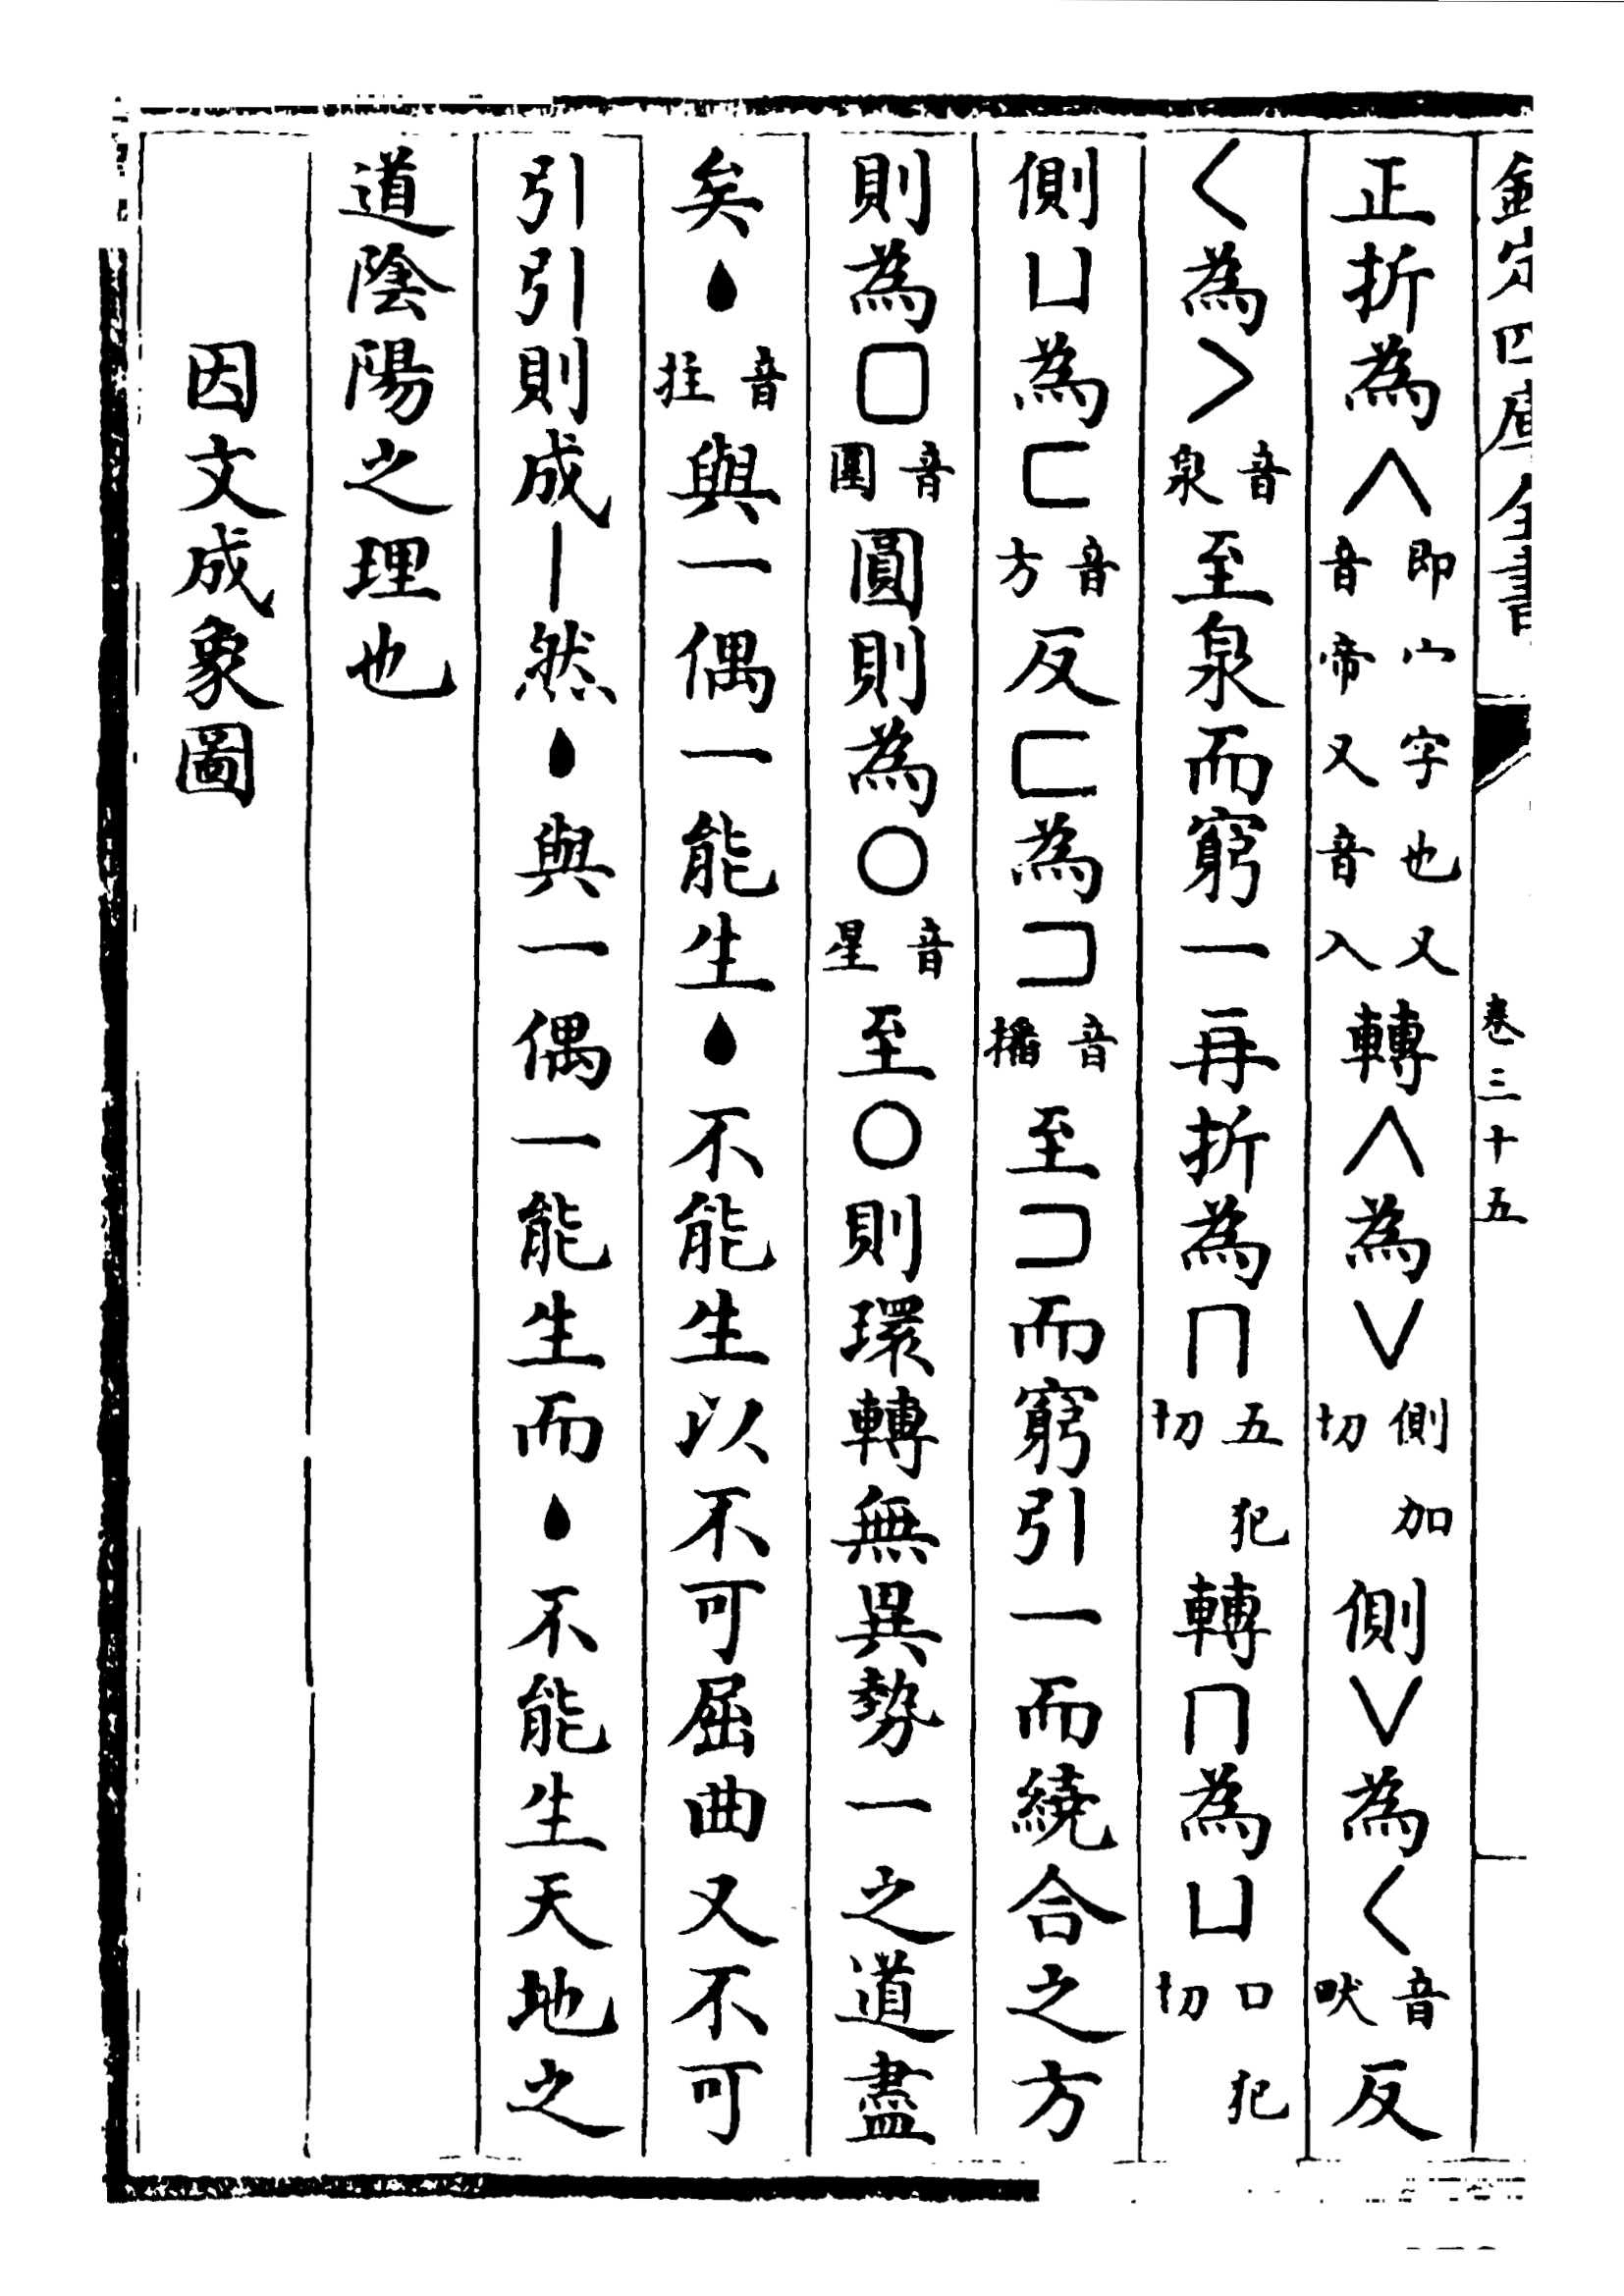 欽定四庫全書 卷三十五
正折為𠆢即宀字也又音帝又音入轉𠆢為∨側加切側∨為𡿨音畎反
𡿨為〉音泉至泉而窮一再折為冂五犯切轉冂為凵口犯切
側凵為匚音方反匚為コ音播至コ而窮引一而繞合之方
則為囗音圍圓則為○音星至○則環轉無異勢一之道盡
矣丶音拄與一偶一能生丶不能生以不可屈曲又不可
引引則成丨然丶與一偶一能生而丶不能生天地之
道陰陽之理也
因文成象圖